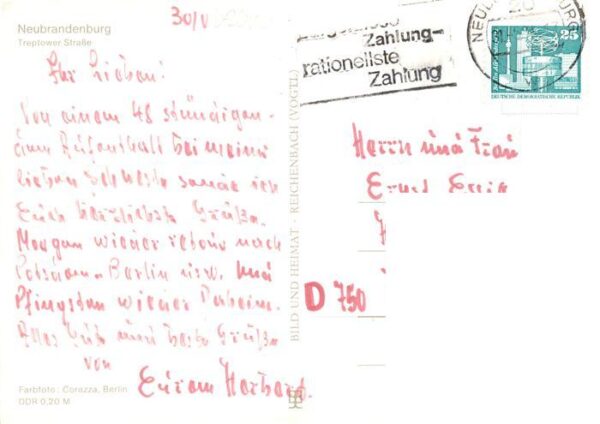 Neubrandenburg
Treptower Straße
30/V
Ihr Lieben!
Von einem 48 stündigen
Aufenthalt bei meiner
lieben Schwester sende ich
Euch herzlichste Grüße.
Morgen wieder retour nach
Potsdam - Berlin usw. Und
Pfingsten wieder Daheim.
Alles Gute und beste Grüße
von
Eurem Herbert.
Farbfoto: Corazza, Berlin
DDR 0,20 M
BILD UND HEIMAT - REICHENBACH (VOGTL)
Zahlung-
rationellste
Zahlung
20
25
DEUTSCHE DEMOKRATISCHE REPUBLIK
Herrn und Frau
Ernst
D 750